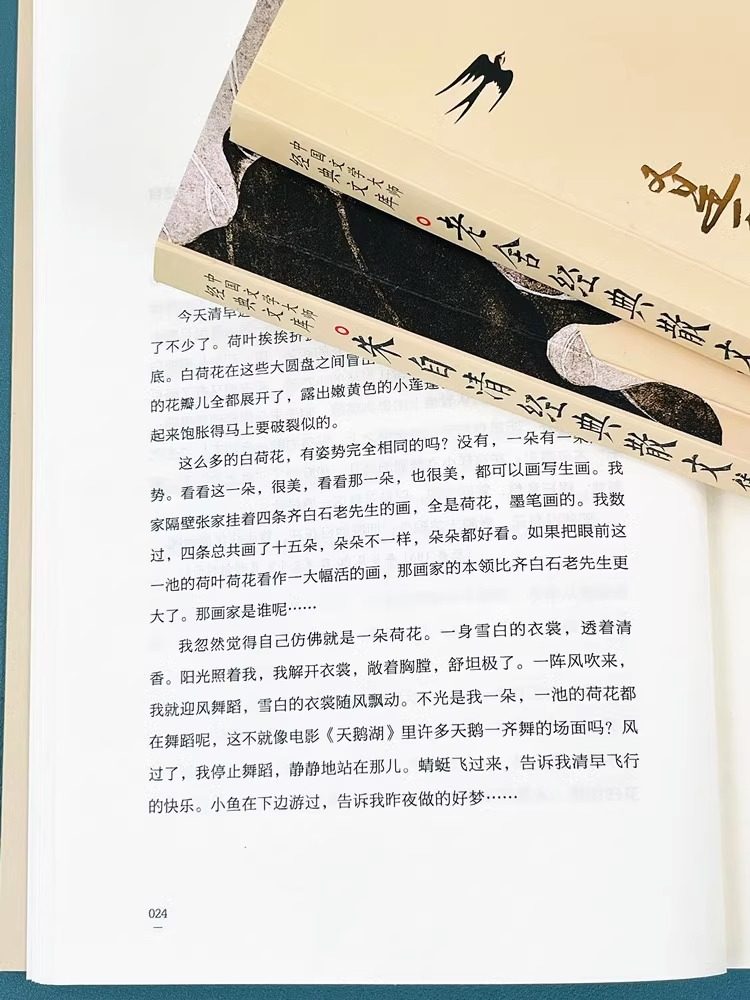 中国文学大师
经典文库
老舍经典散文
中国文学大师
经典文库
朱自清经典散文
今天清早
了不少了。荷叶挨挨挤
底。白荷花在这些大圆盘之间冒出
的花瓣儿全都展开了，露出嫩黄色的小莲蓬
起来饱胀得马上要破裂似的。
这么多的白荷花，有姿势完全相同的吗？没有，一朵有一朵
势。看看这一朵，很美，看看那一朵，也很美，都可以画写生画。我
家隔壁张家挂着四条齐白石老先生的画，全是荷花，墨笔画的。我数
过，四条总共画了十五朵，朵朵不一样，朵朵都好看。如果把眼前这
一池的荷叶荷花看作一大幅活的画，那画家的本领比齐白石老先生更
大了。那画家是谁呢……
我忽然觉得自己仿佛就是一朵荷花。一身雪白的衣裳，透着清
香。阳光照着我，我解开衣裳，敞着胸膛，舒坦极了。一阵风吹来，
我就迎风舞蹈，雪白的衣裳随风飘动。不光是我一朵，一池的荷花都
在舞蹈呢，这不就像电影《天鹅湖》里许多天鹅一齐舞的场面吗？风
过了，我停止舞蹈，静静地站在那儿。蜻蜓飞过来，告诉我清早飞行
的快乐。小鱼在下边游过，告诉我昨夜做的好梦……
024